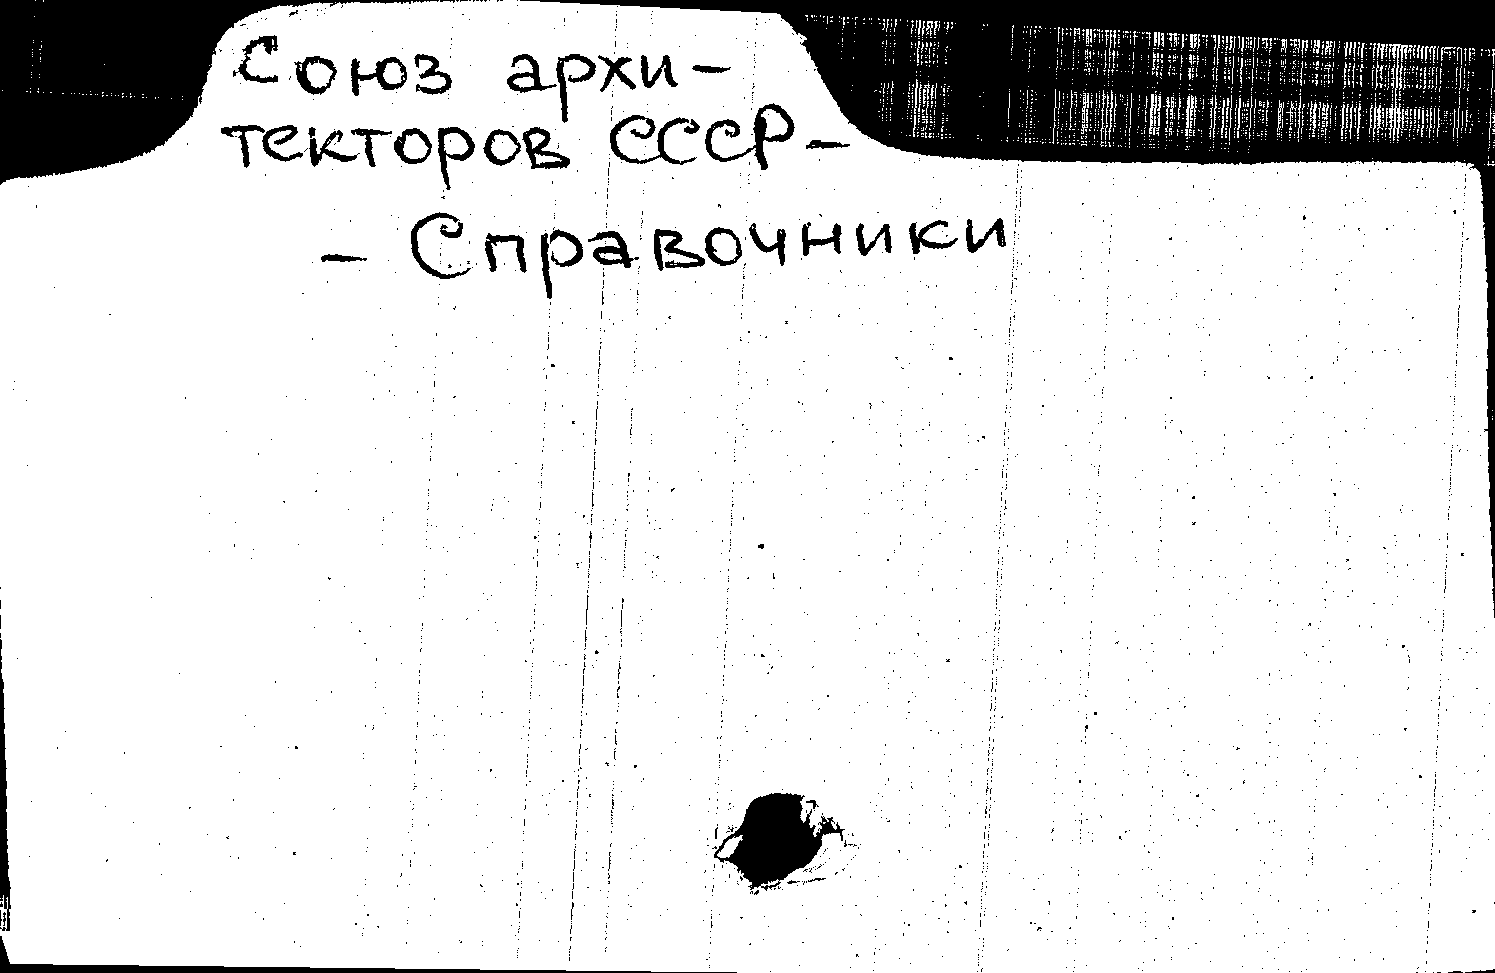 Союз архи-
текторов СССР-
- Справочники